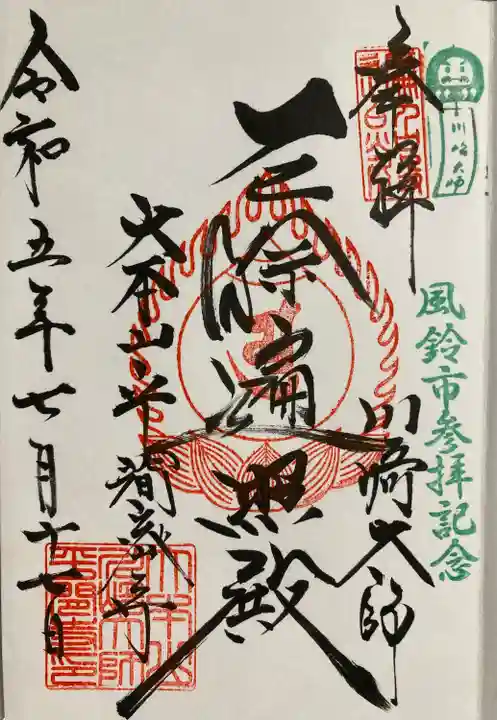 奉拝
川崎大師
風鈴市参拝記念
川崎大師
遍照殿
大本山平間寺
令和五年七月十七日